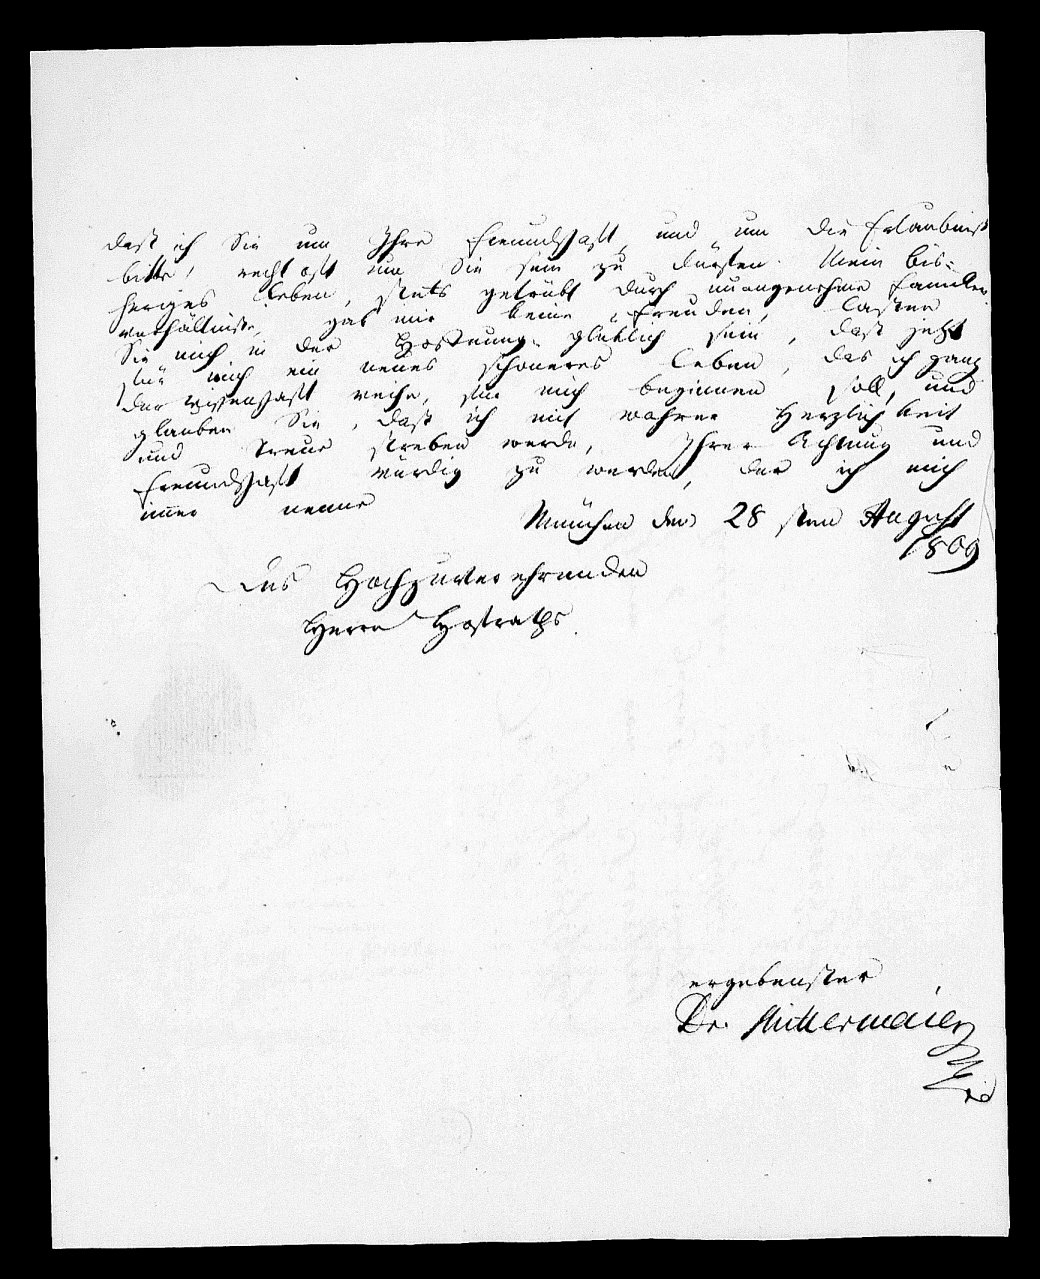 daß ich Sie um Ihre Freundschaft, und um die Erlaubniß
bitte, recht oft um Sie sein zu dürfen. Mein bis-
heriges Leben, stets getrübt durch unangenehme Familien
verhältnisse, gab mir keine Freuden, lassen
Sie mich in der Hoffnung glüklich sein, daß jetzt
für mich ein neues schöneres Leben, das ich ganz
der Wissenschaft weihe, für mich beginnen soll, und
glauben Sie, daß ich mit wahrer Herzlichkeit
und Treue streben werde, Ihrer Achtung und
Freundschaft würdig zu werden, der ich mich
immer nenne
München den 28 sten August
1809
Des Hochzuverehrenden
Herrn Hofraths
ergebenster
Dr. Mittermaier